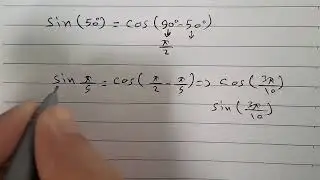 sin(50°) = cos(90°-50°)
π/2
sin π/5 = cos(π/2 - π/5) => cos(3π/10)
sin(3π/10)